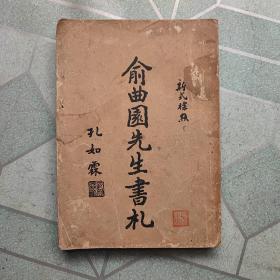 新式標點
俞曲園先生書札
孔如霖